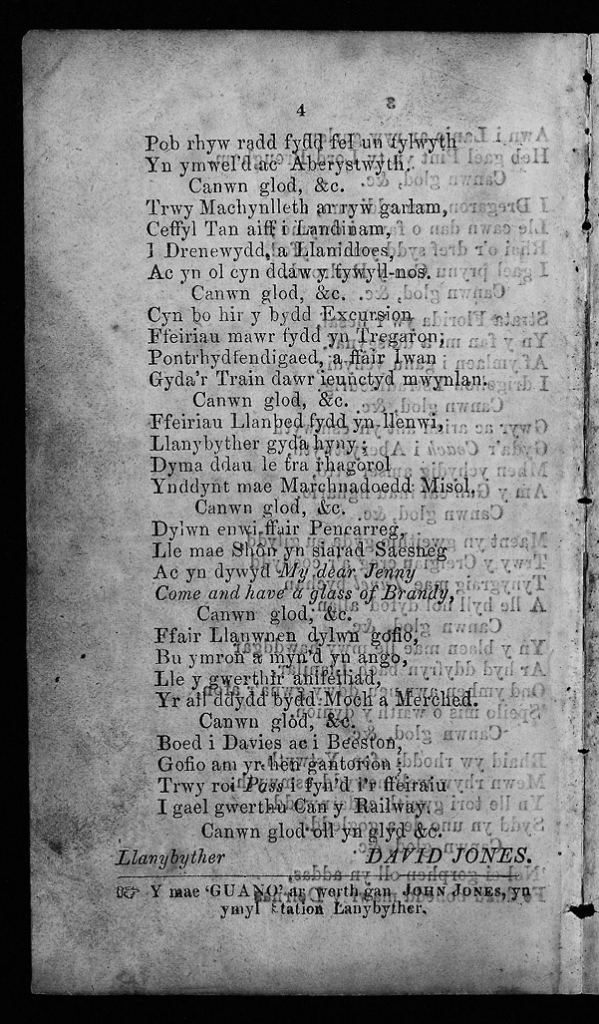 4
Pob rhyw radd fydd fel un tylwyth
Yn ymwel'd ac Aberystwyth,
Canwn glod, &c.
Trwy Machynlleth ar ryw garlam,
Ceffyl Tan aiff i Landinam,
I Drenewydd, a Llanidloes,
Ac yn ol cyn ddaw y tywyll-nos.
Canwn glod, &c.
Cyn bo hir y bydd Excursion
Ffeiriau mawr fydd yn Tregaron;
Pontrhydfendigaed, a ffair Iwan
Gyda'r Train dawr ieunctyd mwynlan.
Canwn glod, &c.
Ffeiriau Llanbed fydd yn llenwi,
Llanybyther gyda hyny;
Dyma ddau le tra rhagorol
Ynddynt mae Marchnadoedd Misol,
Canwn glod, &c.
Dylwn enwi ffair Pencarreg,
Lle mae Shôn yn siarad Saesneg
Ac yn dywyd My dear Jenny
Come and have a glass of Brandy,
Canwn glod, &c.
Ffair Llanwnen dylwn gofio,
Bu ymron a myn'd yn ango,
Lle y gwerthir anifeiliad,
Yr ail ddydd bydd Moch a Merched.
Canwn glod, &c.
Boed i Davies ac i Beeston,
Gofio am yr hen gantorion;
Trwy roi Pass i fyn'd i'r ffeiriau
I gael gwerthu Can y Railway.
Canwn glod oll yn glyd &c.
Llanybyther DAVID JONES.
☞ Y mae 'GUANO' ar werth gan JOHN JONES, yn
ymyl Station Lanybyther.